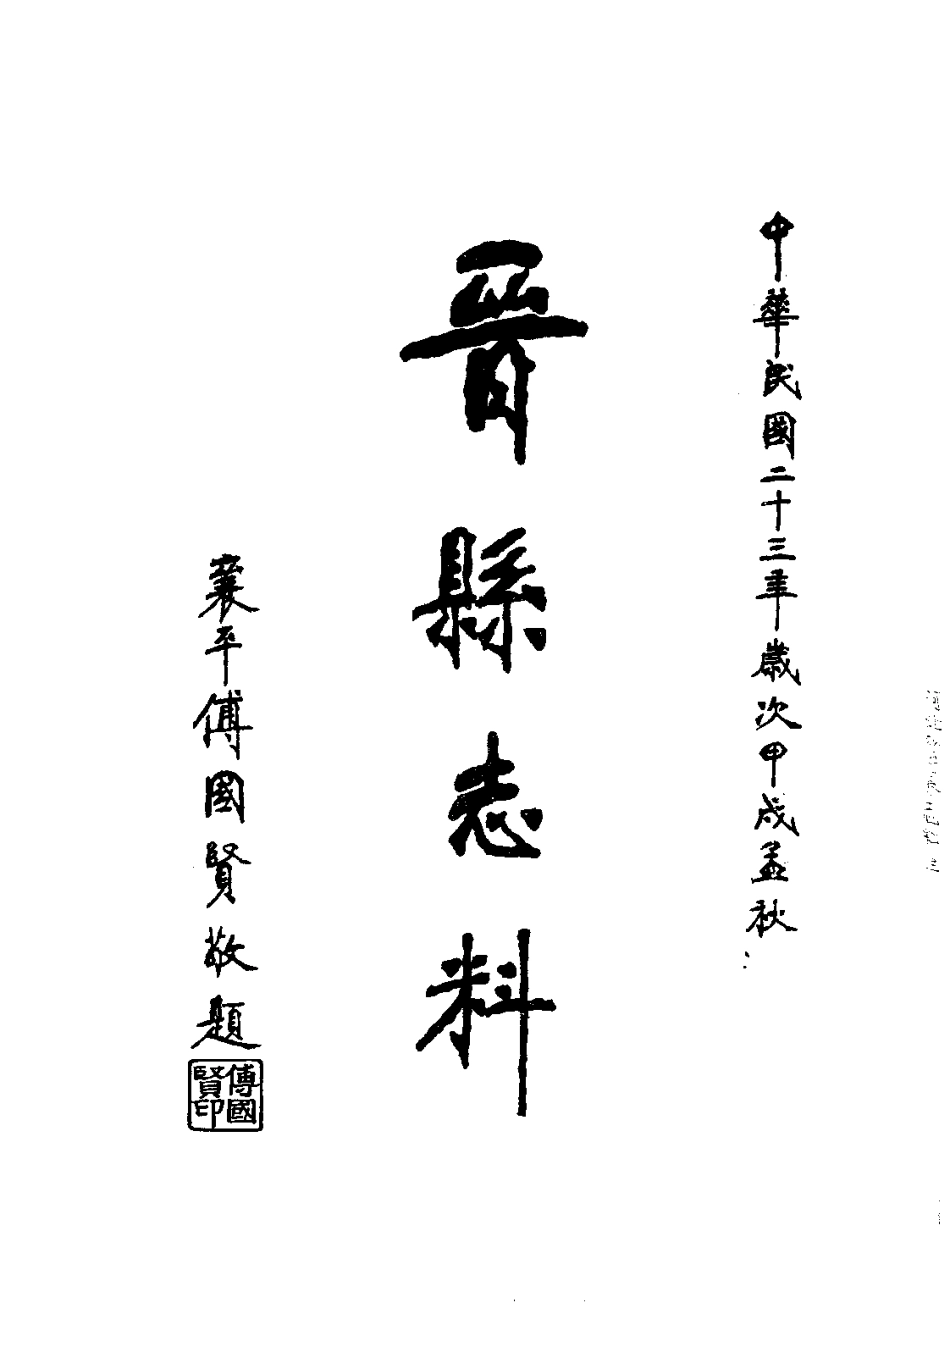 中華民國二十三年歲次甲戌孟秋
晋縣志料
襄平傅國賢敬題
傅國賢印